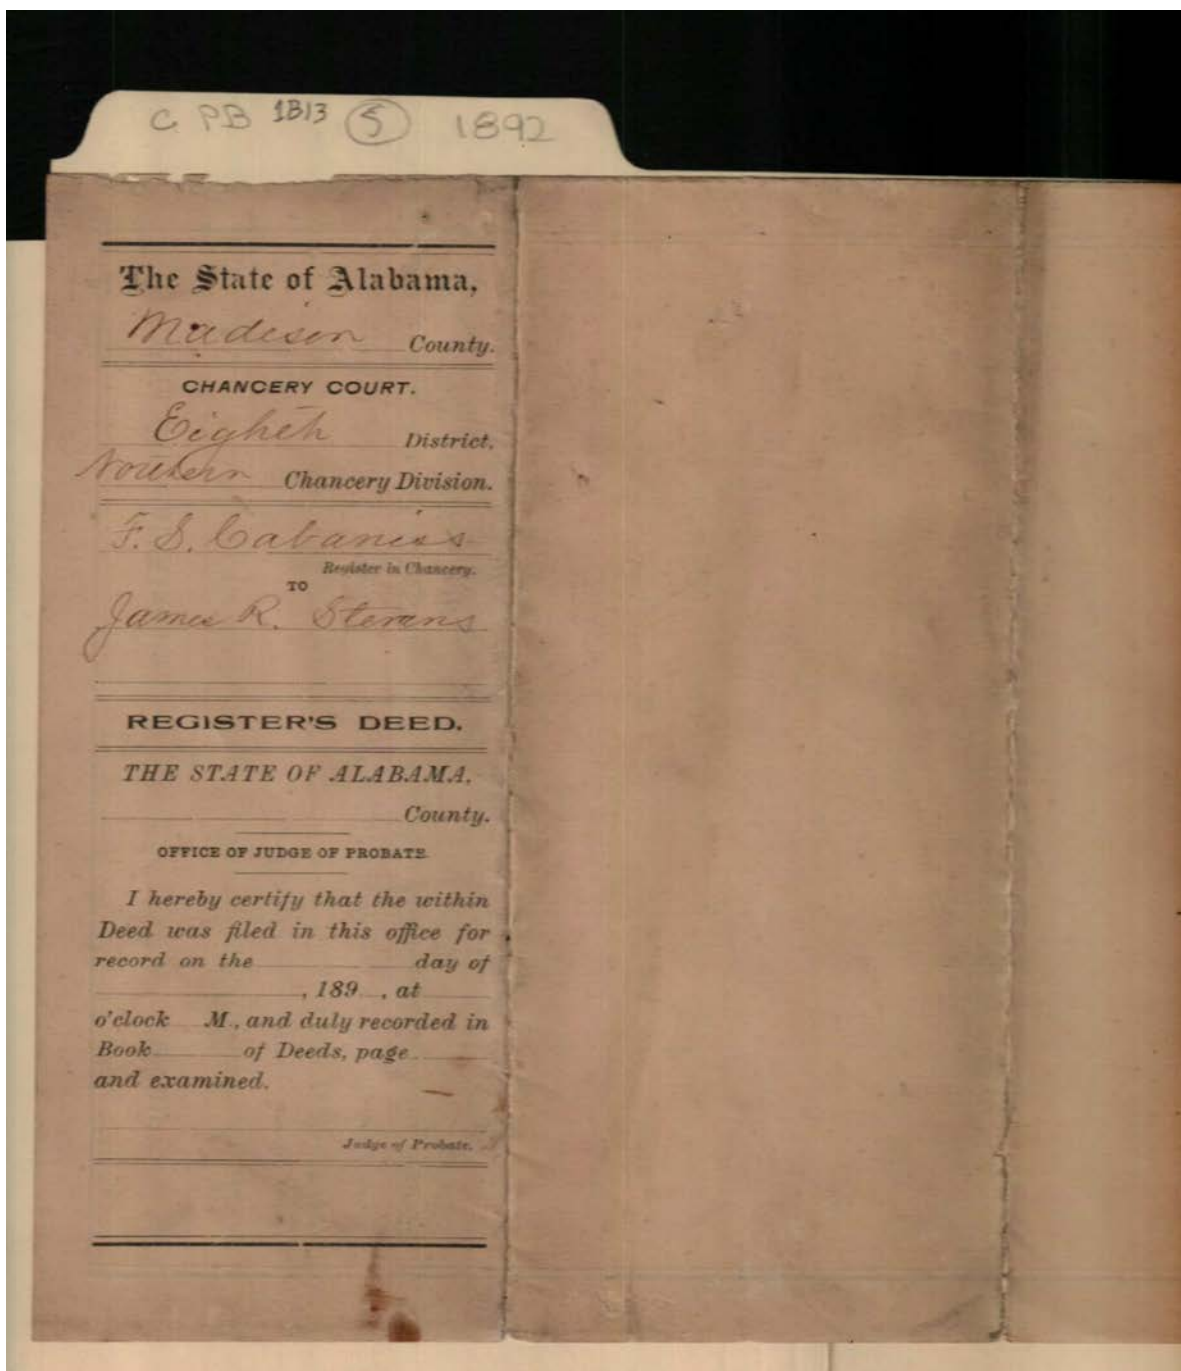 C PB 1B13 5 1892
The State of Alabama,
Madison County.
CHANCERY COURT.
Eighth District.
Northern Chancery Division.
F. S. Cabaniss
Register in Chancery.
TO
James R. Stevens
REGISTER'S DEED.
THE STATE OF ALABAMA,
County.
OFFICE OF JUDGE OF PROBATE.
I hereby certify that the within
Deed was filed in this office for
record on the day of
, 189 , at
o'clock M., and duly recorded in
Book of Deeds, page
and examined.
Judge of Probate.